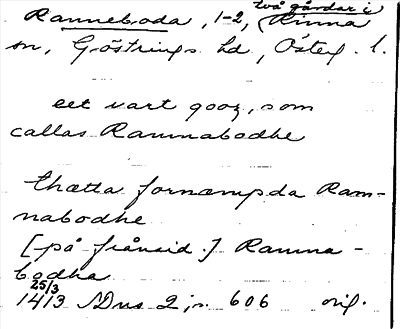 två gårdar i
Ranneboda, 1-2, Rinna
sn, Göstrings hd, Österg. l.
eet vart gooz, som
callas Ramnabodhe
thætta fornæmpda Ram-
nabodhe
[på frånsid.] Ramna-
bodha
25/3
1413 SDns 2, s. 606 orig.